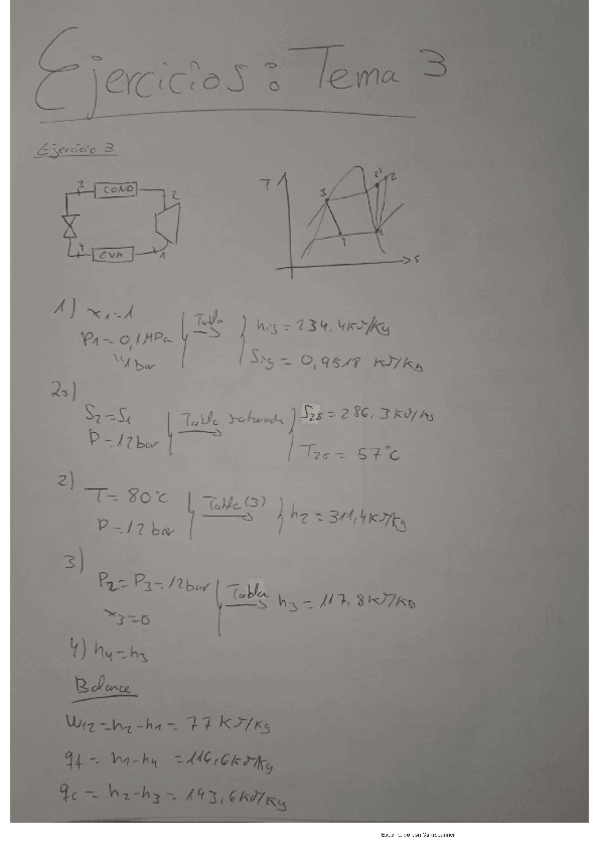 Ejercicios: Tema 3
Ejercicio 3
3 COND 2
4 EVA 1
T 3 2' 2
4 1
s
1) x1=1
P1=0,1MPa Tabla h1g=234,4KJ/Kg
1bar S1g=0,9518 KJ/Kg
2s)
S2=S1 S2s=286,3KJ/Kg
P=12bar Tabla T2s=57°C
2)
T=80°C Tabla(3) h2=311,4KJ/Kg
P=12bar
3)
P2=P3=12bar Tabla h3=117,8KJ/Kg
x3=0
4) h4=h3
Balance
W12=h2-h1=77 KJ/Kg
qf=h1-h4=116,6KJ/Kg
qc=h2-h3=193,6KJ/Kg